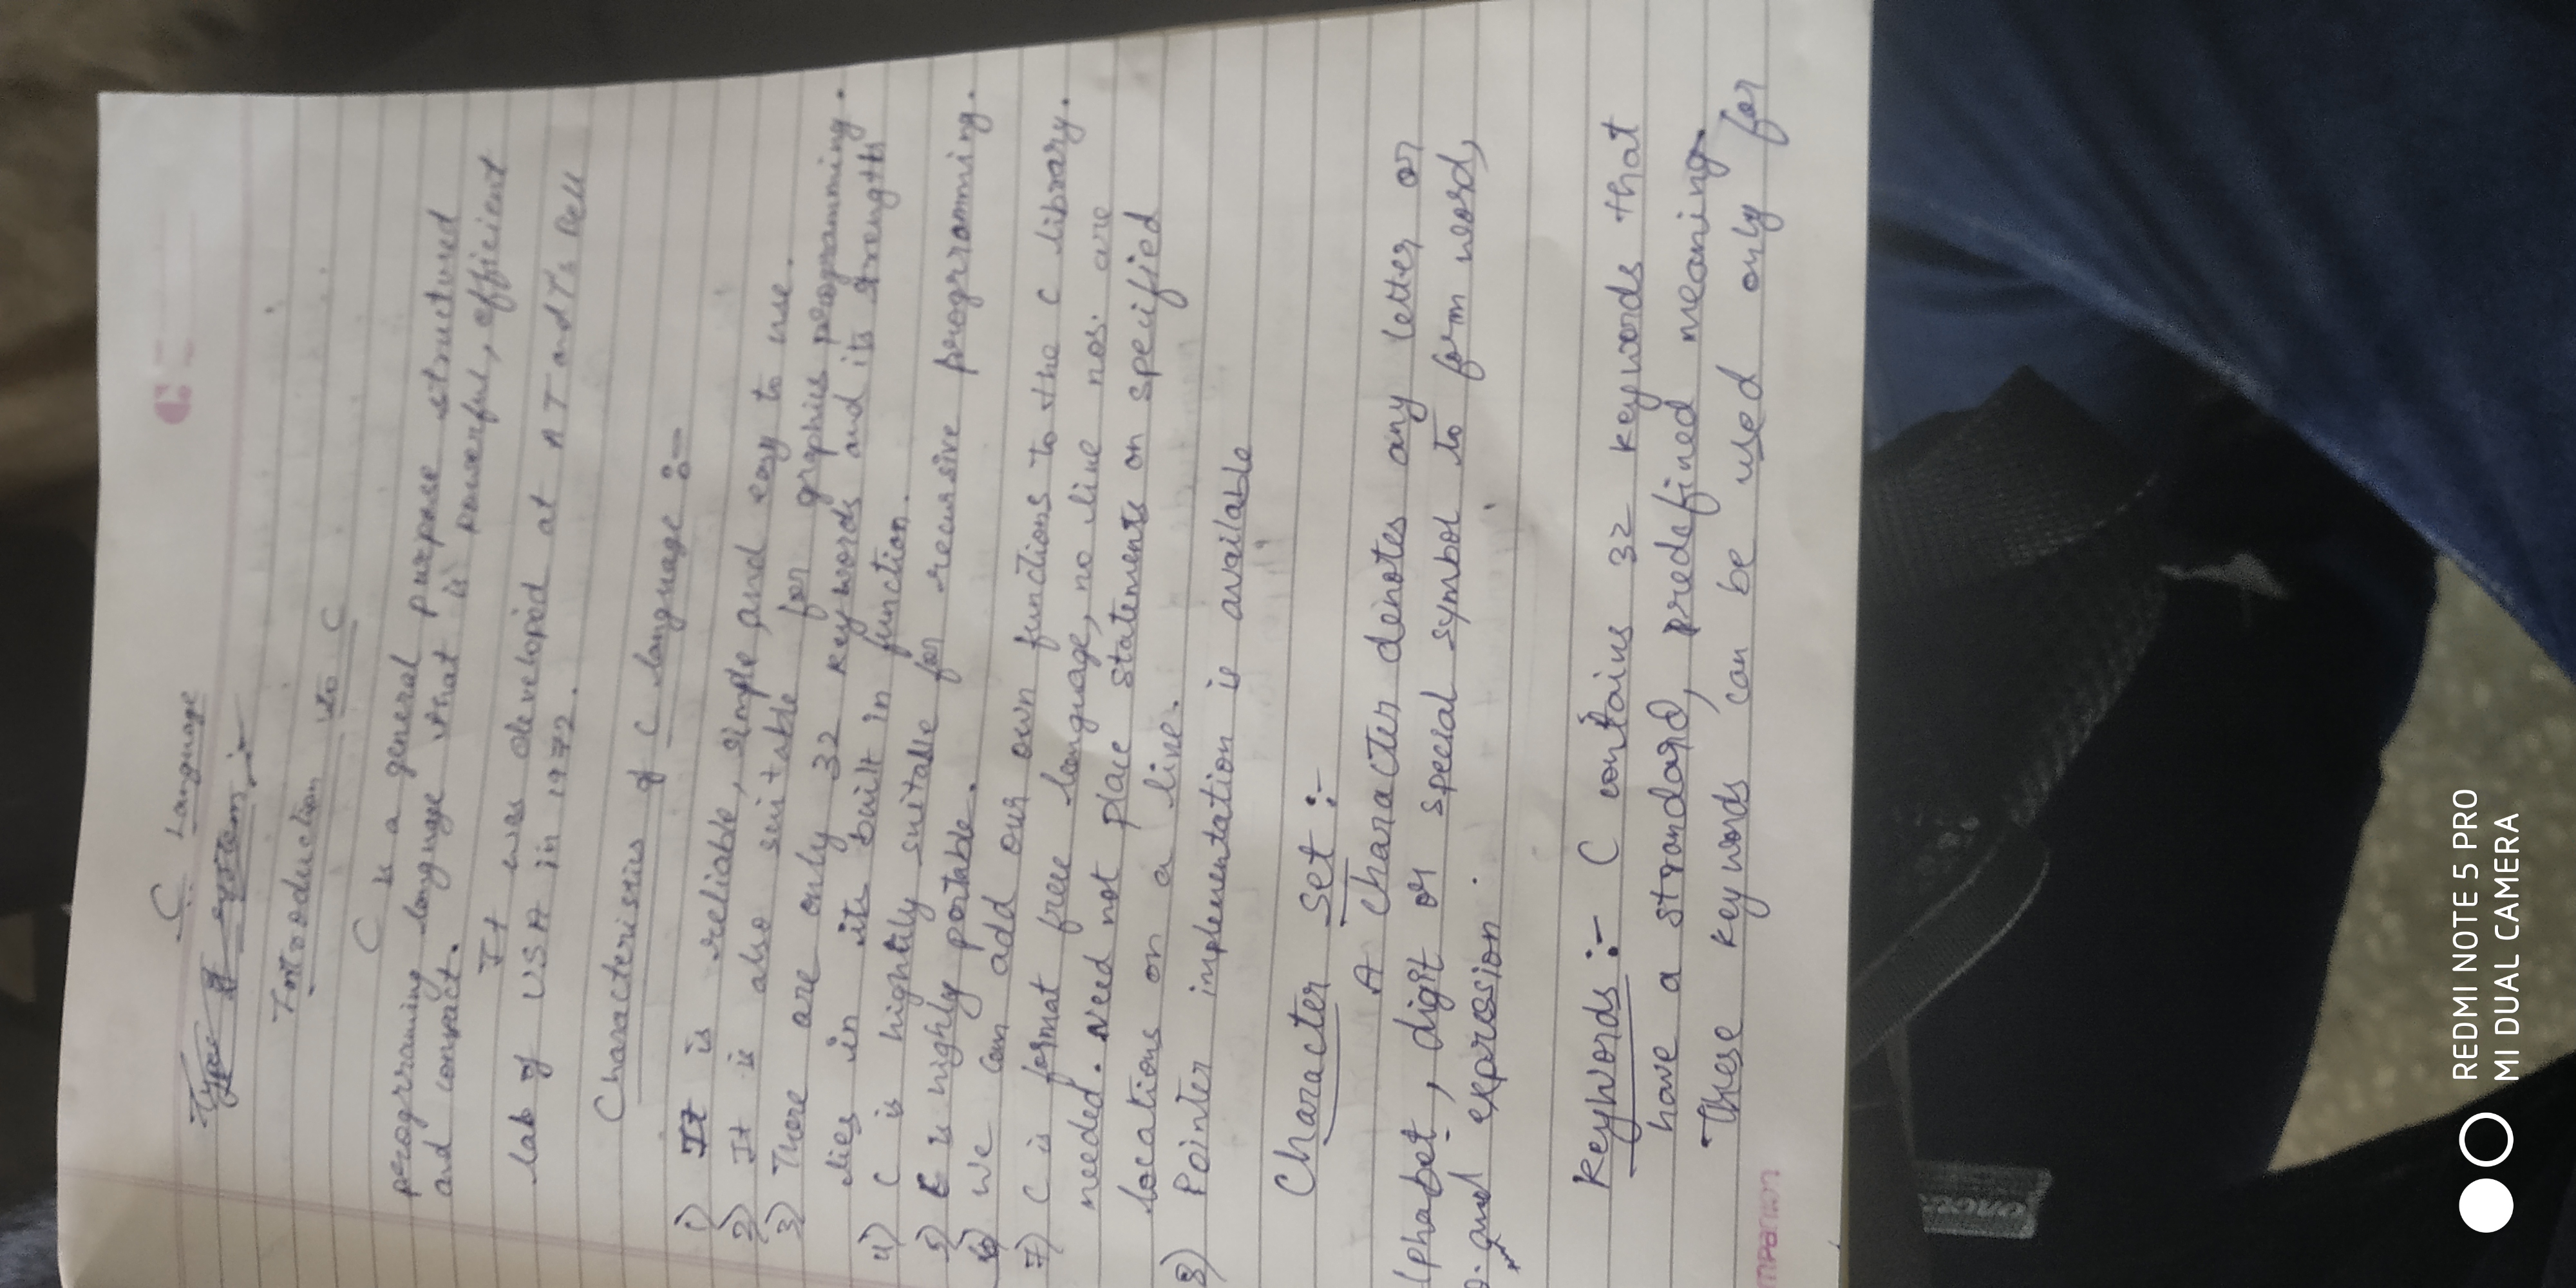 C Language
Types of system :-
Introduction to C
C is a general purpose structured
programing language that is powerful, efficient
and compact.
It was developed at AT and T's Bell
lab of USA in 1972.
Characteristics of C language :-
1) It is reliable, simple and easy to use.
2) It is also suitable for graphics programming.
3) There are only 32 keywords and its strength
lies in its built in function.
4) C is hightly suitable for recursive progrramming.
5) C is highly portable.
6) We can add our own functions to the C library.
7) C is format free language, no line nos. are
needed. Need not place statements on specified
locations on a line.
8) Pointer implementation is available
Character set :-
A character denotes any letter or
lphabet, digit or special symbol to form word,
o. and expression
Keywords :- C contains 32 keywords that
have a strandard, predefined meaning
These keywords can be used only for
mpanion
REDMI NOTE 5 PRO
MI DUAL CAMERA